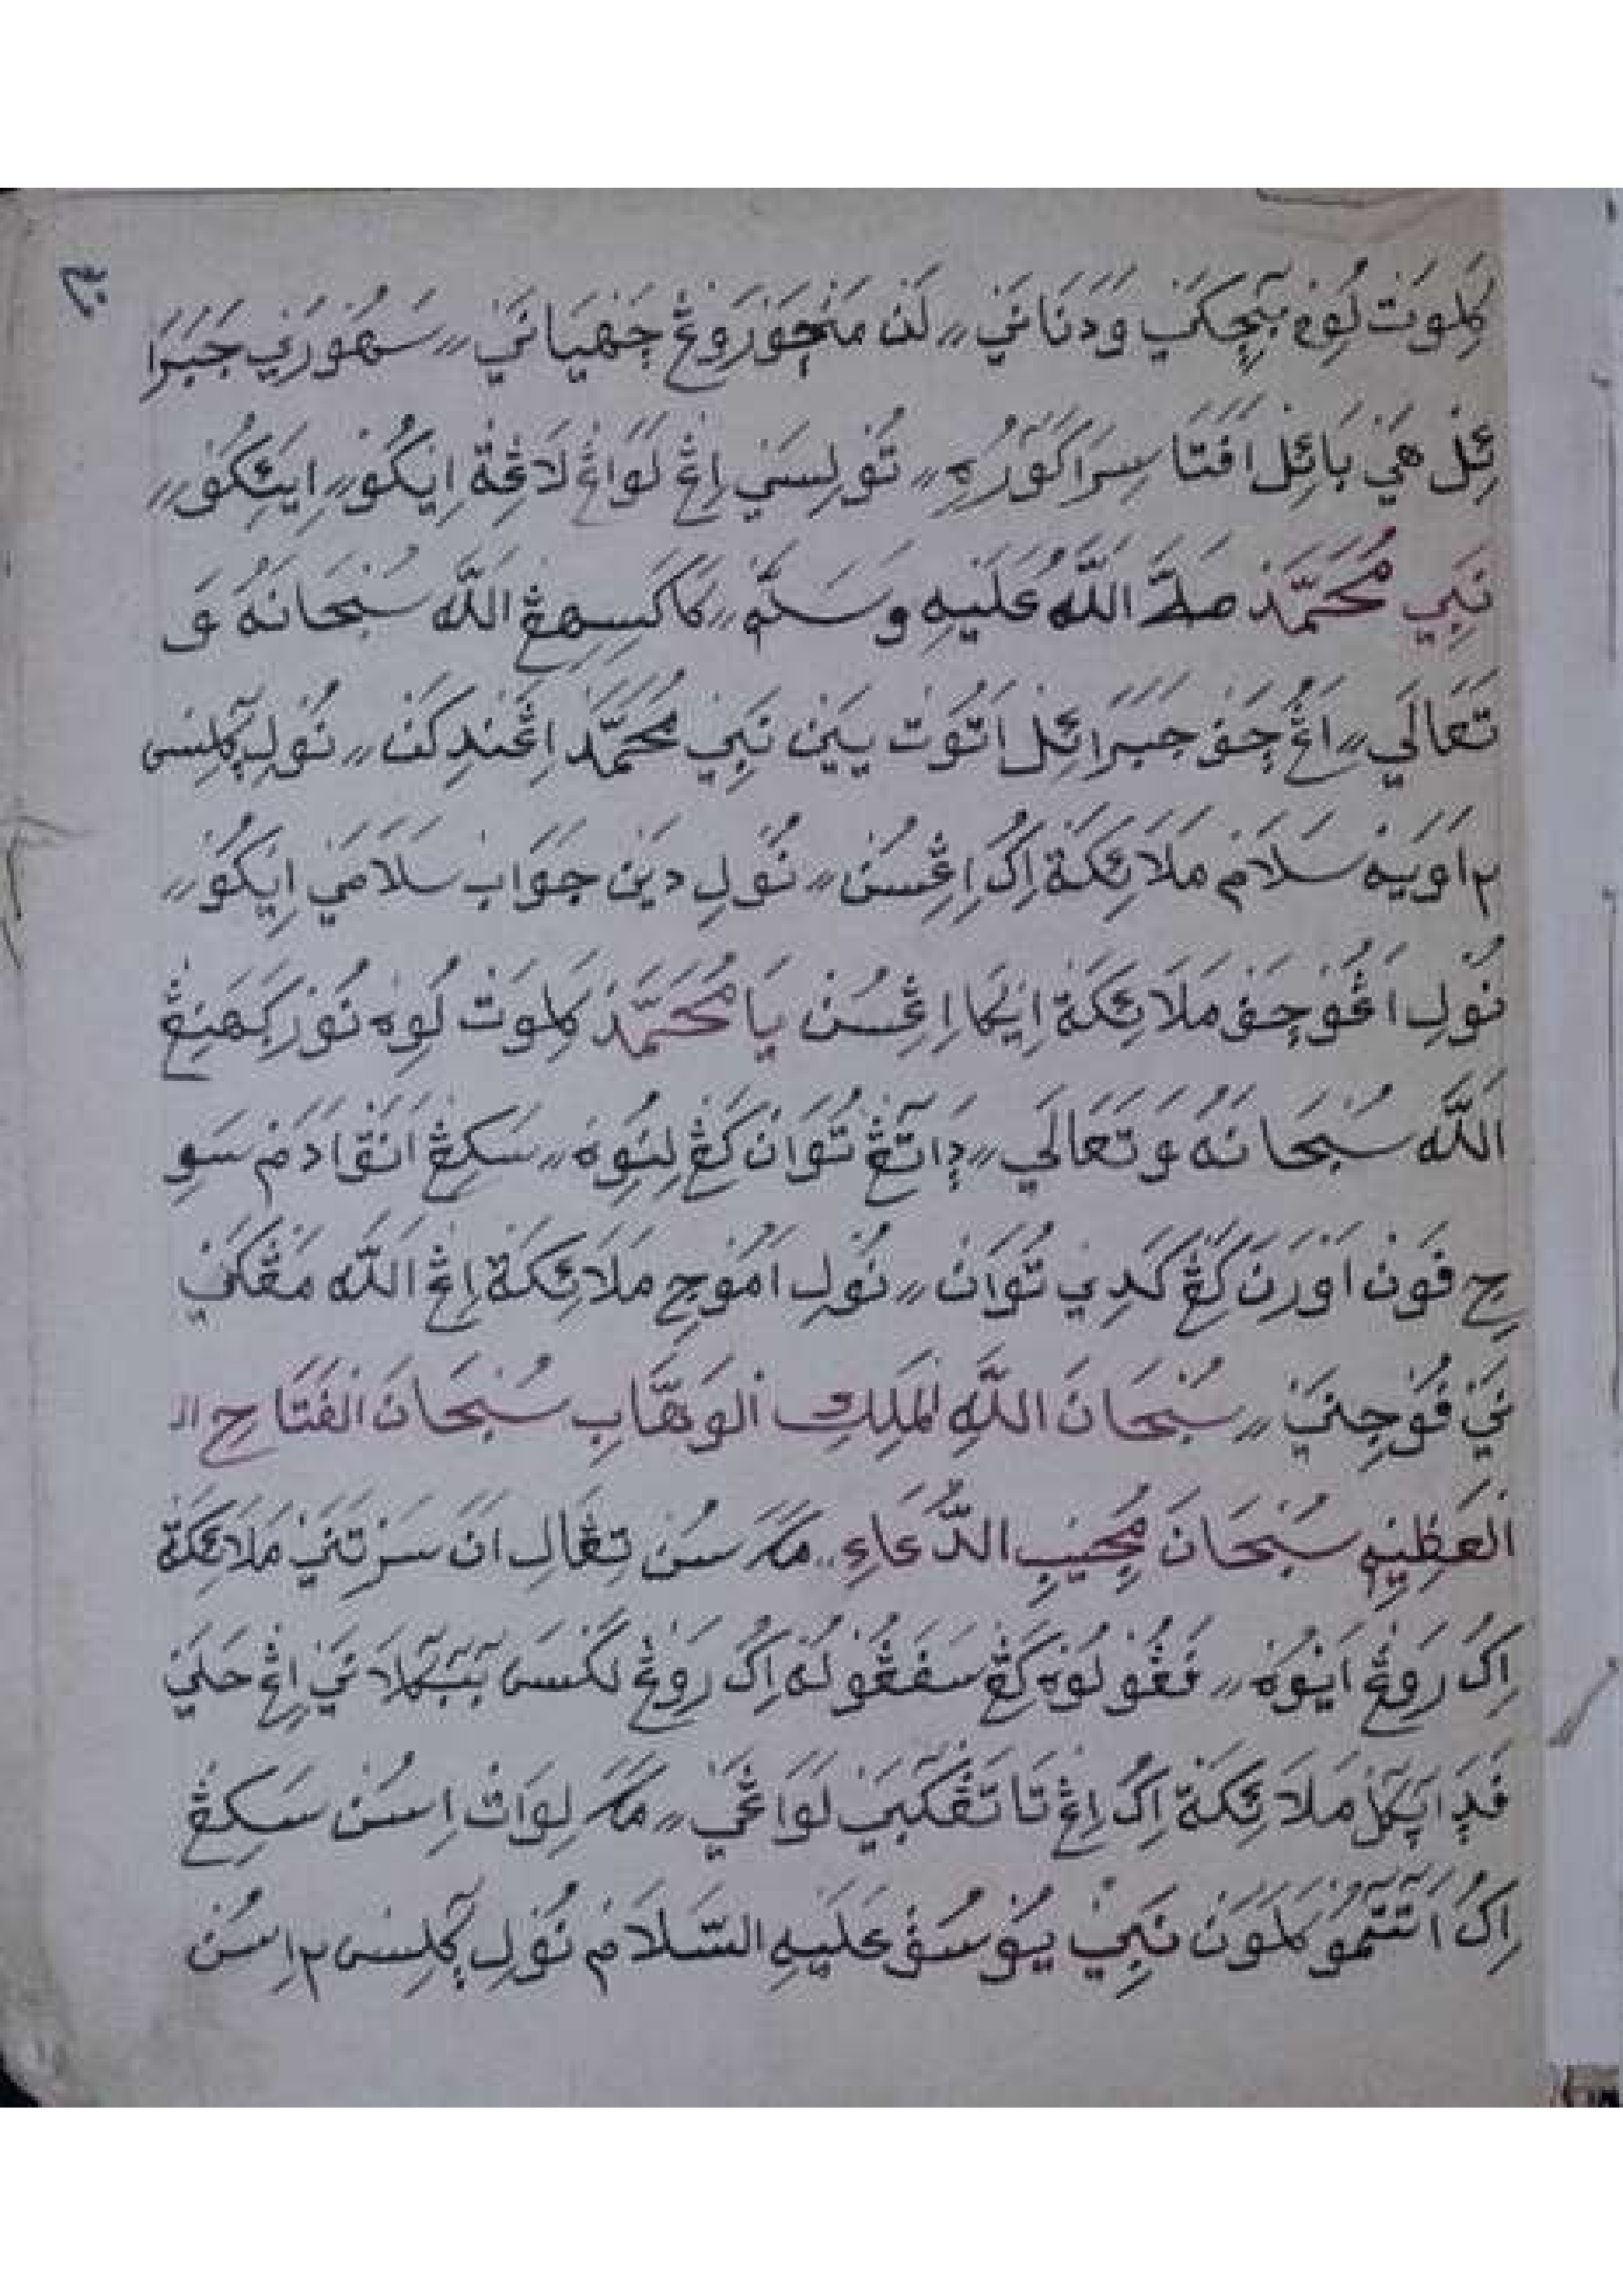 كَلَوَنْ لُوِهْ بٓچِكَيْ وَدَنَانَيْ ٫٫ لَنْ مَنْچَوْرَوْڠْ چَهْيَانَيْ ٫٫ سَهُوْرَيْ جَبَرَا
ئِلْ هَيْ بَائِلْ اَفَتَا سِرَاكَوْرُهِ ٫٫ تُوْلِسَيْ اِڠْ لَوَاڠْ لَاڠِة اِيْكُوْ ٫٫ اِيْئِكُوْ ٫٫
نَبِي مُحَمَّدْ صَلَّى اللّٰهُ عَلَيْهِ وَسَلَّمْ ٫٫ كَاكَسِهِڠْ اللّٰه سُبْحَانَهُ وَ
تَعَالَى ٫٫ اَڠُچَفْ جَبَرَائِلْ اَتُوْتْ يَيْنْ نَبِي مُحَمَّدْ اِڠَنْدِكَنْ ٫٫ نُوْلِ
اَوَيْه سَلَامْ مَلَائِكَة اِكُ اِڠْسُنْ ٫٫ نُوْلِ دَيْنْ جَوَابْ سَلَامَيْ اِيْكُوْ ٫٫
نُوْلِ اَڠُوْچَفْ مَلَائِكَة اِيْكَا اِڠْسُنْ يَا مُحَمَّدْ كَلَوَنْ لُوِهْ نُوْرْ
اَللّٰه سُبْحَانَهُ وَتَعَالَى ٫٫ دَاتَٓڠْ تُوَانْ كَڠْ لِنُوِهْ ٫٫ سَكِڠْ اَنَقْ اَدَمْ سَوِ
جِ فَوْنْ اَوْرَنَ كَڠْ كَدِي تُوَانْ ٫٫ نُوْلِ اَمُوْجِ مَلَائِكَة اِڠْ اَللّٰه مَڠْكَيْ
نَيْ فُوْجِنَيْ ٫٫ سُبْحَانَ اللّٰهِ الْمَلِكِ الْوَهَّابِ سُبْحَانَ الْفَتَّاحِ الـ
الْعَظِيْمِ سُبْحَانَ مُجِيْبِ الدُّعَاءِ ٫٫ مَكَ سُنْ تِڠَالِ اَنَ سَرْتَنَيْ مَلَائِكَة
اِكُ رَوْڠْ اَيْوُهْ ٫٫ فُڠُوْلُوْهْ كَڠْ سَفُڠُوْلُهْ اِكُ رَوْڠْ لَكْسَ اِڠْ
فَدَ مَلَائِكَة اِكُ اِڠْ تَاتَڠْكَبَيْ لَوَاڠَيْ ٫٫ مَكَ لِوَاتْ اِسُنْ سَكِڠْ
اِكُ اَتَٓتَٓمُوْ كَلَوَنْ نَبِيْ يُوْسُفْ عَلَيْهِ السَّلَامْ نُوْلِ اِسُنْ